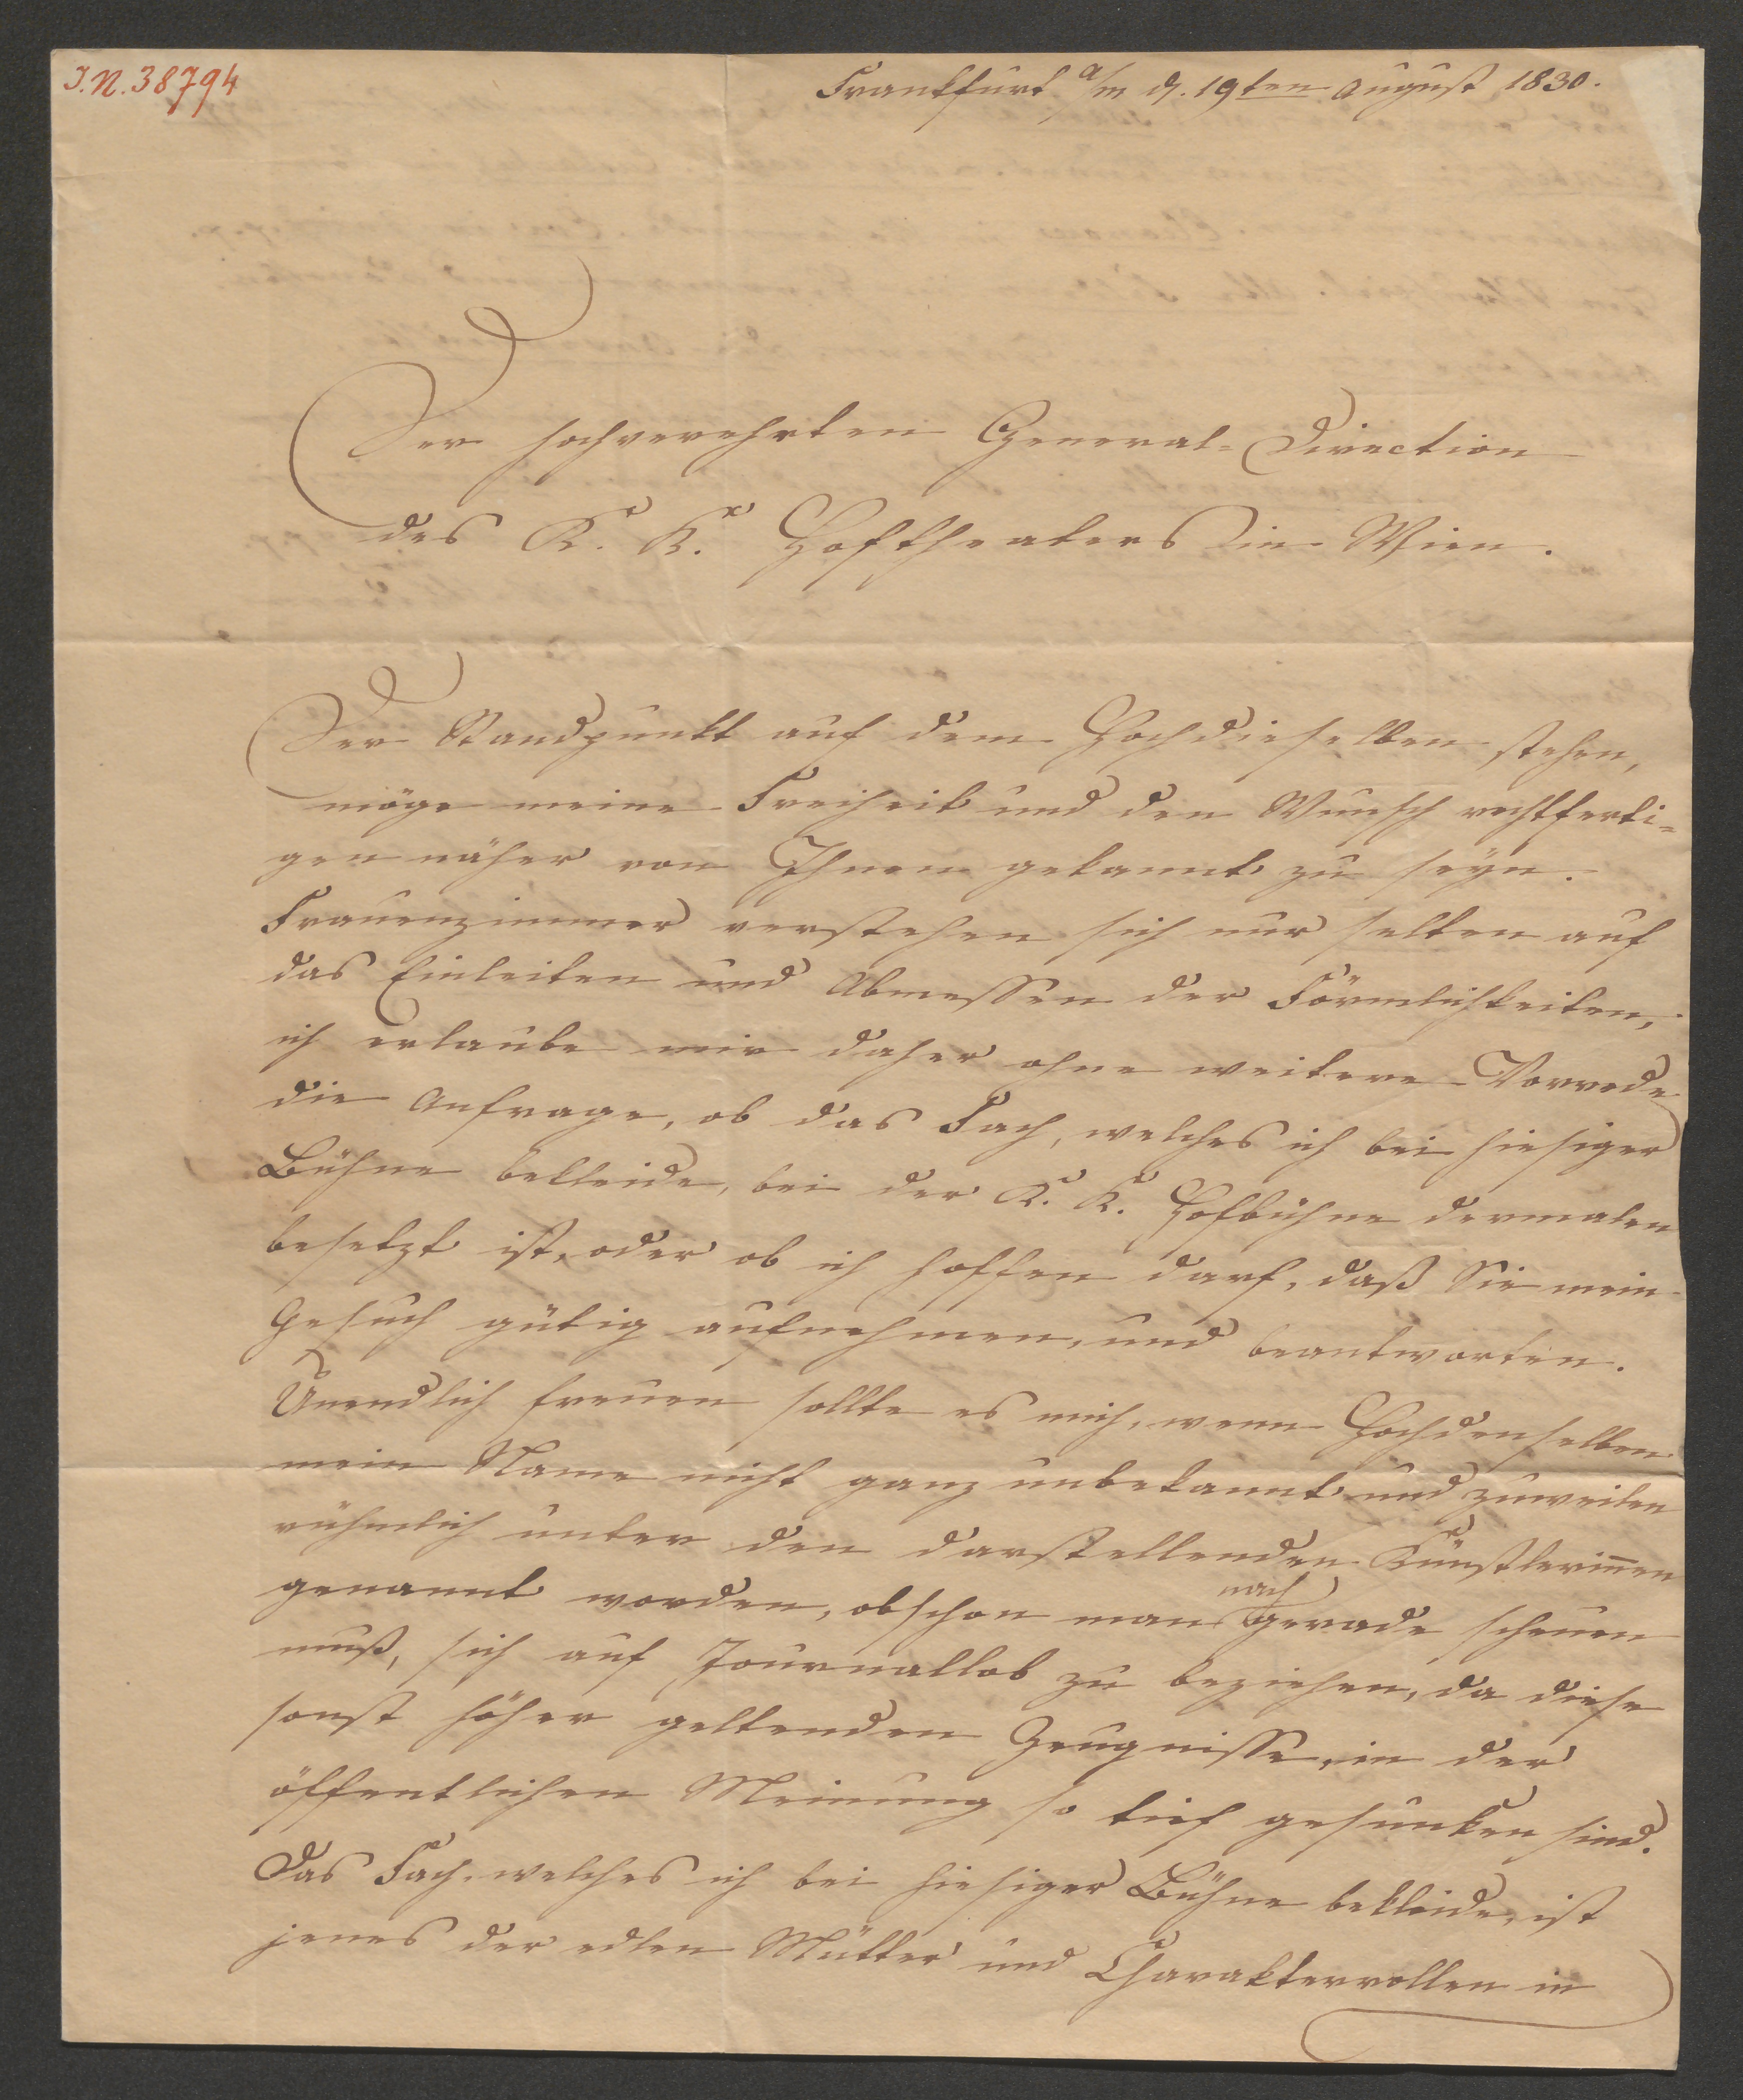 I.N. 38794
Frankfurt a/m d. 19ten August 1830.
Der hochverehrten General-Direction
des K. K. Hoftheaters in Wien.
Der Standpunkt auf dem Hochdieselben stehen,
möge meine Freiheit und den Wunsch rechtferti=
gen näher von Ihnen gekannt zu seyn.
Frauenzimmer verstehen sich nur selten auf
das Einleiten und Abmessen der Förmlichkeiten,
ich erlaube mir daher ohne weitere Vorrede
die Anfrage, ob das Fach, welches ich bei hiesiger
Bühne bekleide, bei der K. K. Hofbühne dermalen
besetzt ist, oder ob ich hoffen darf, daß Sie mein
Gesuch gütig aufnehmen, und beantworten.
Unendlich freuen sollte es mich, wenn Hochdenselben
mein Name nicht ganz unbekannt und zuweilen
rühmlich unter den darstellenden Künstlerinnen
genannt worden, obschon man nach gerade scheuen
muß, sich auf Journallob zu beziehen, da diese
sonst höher geltenden Zeugnisse, in der
öffentlichen Meinung so tief gesunken sind.
Das Fach, welches ich bei hiesiger Bühne bekleide, ist
jenes der edlen Mütter und Charakterrollen in